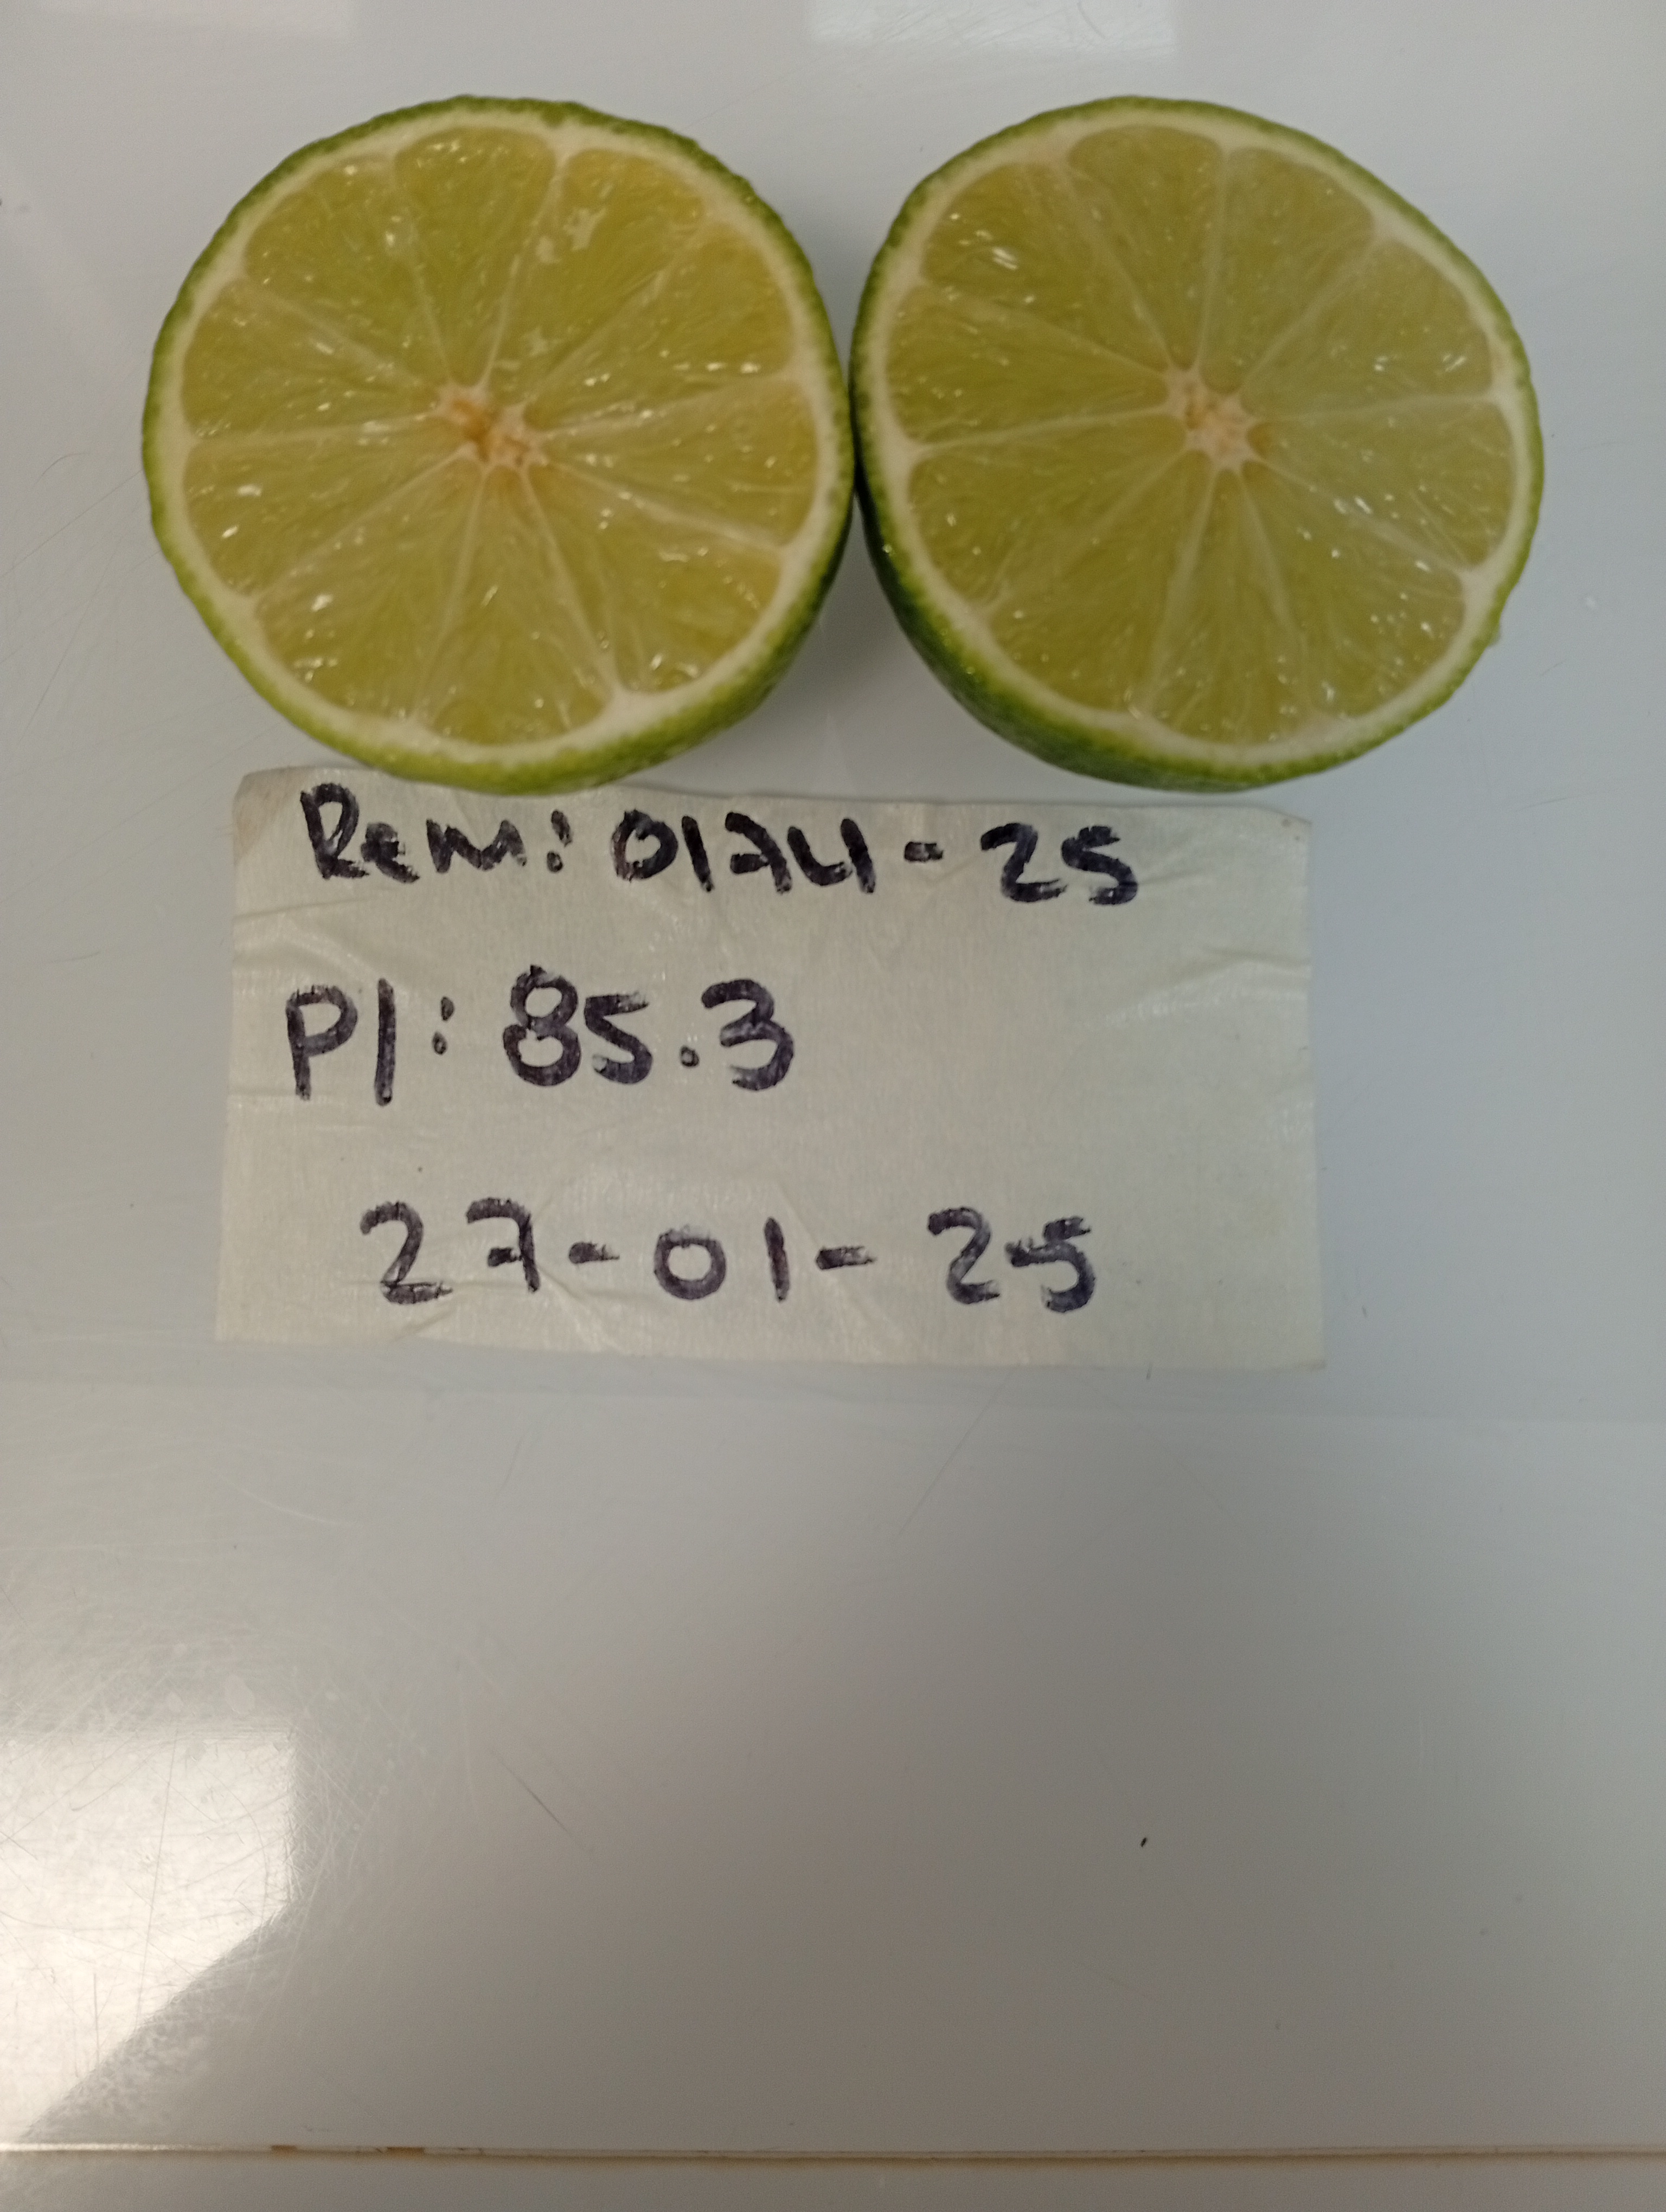 Rem: 0174-25
Pl: 85.3
27-01-25